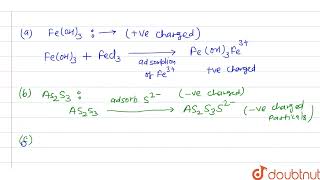 (a) Fe(OH)₃ : → (+ve charged)
Fe(OH)₃ + FeCl₃ → Fe(OH)₃Fe³⁺
adsorption of Fe³⁺
+ve charged
(b) As₂S₃ : (-ve charged)
As₂S₃ adsorb S²⁻ → As₂S₃S²⁻ (-ve charged particals)
(c)
doubtnut